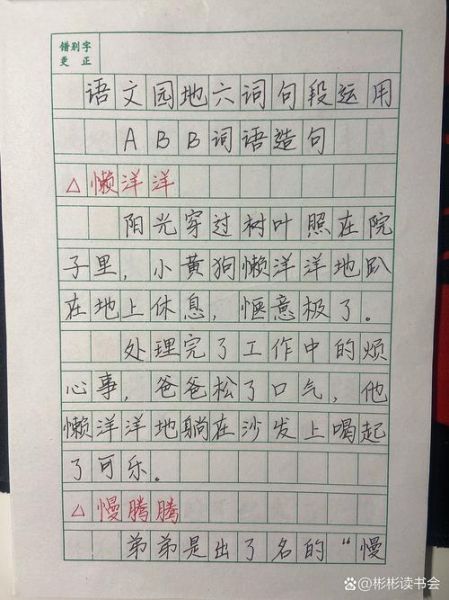 错别字
更正
语文园地六词句段运用
ABB词语造句
△懒洋洋
阳光穿过树叶照在院
子里，小黄狗懒洋洋地趴
在地上休息，惬意极了。
处理完了工作中的烦
心事，爸爸松了口气，他
懒洋洋地躺在沙发上喝起
了可乐。
△慢腾腾
弟弟是出了名的“慢
@彬彬读书会